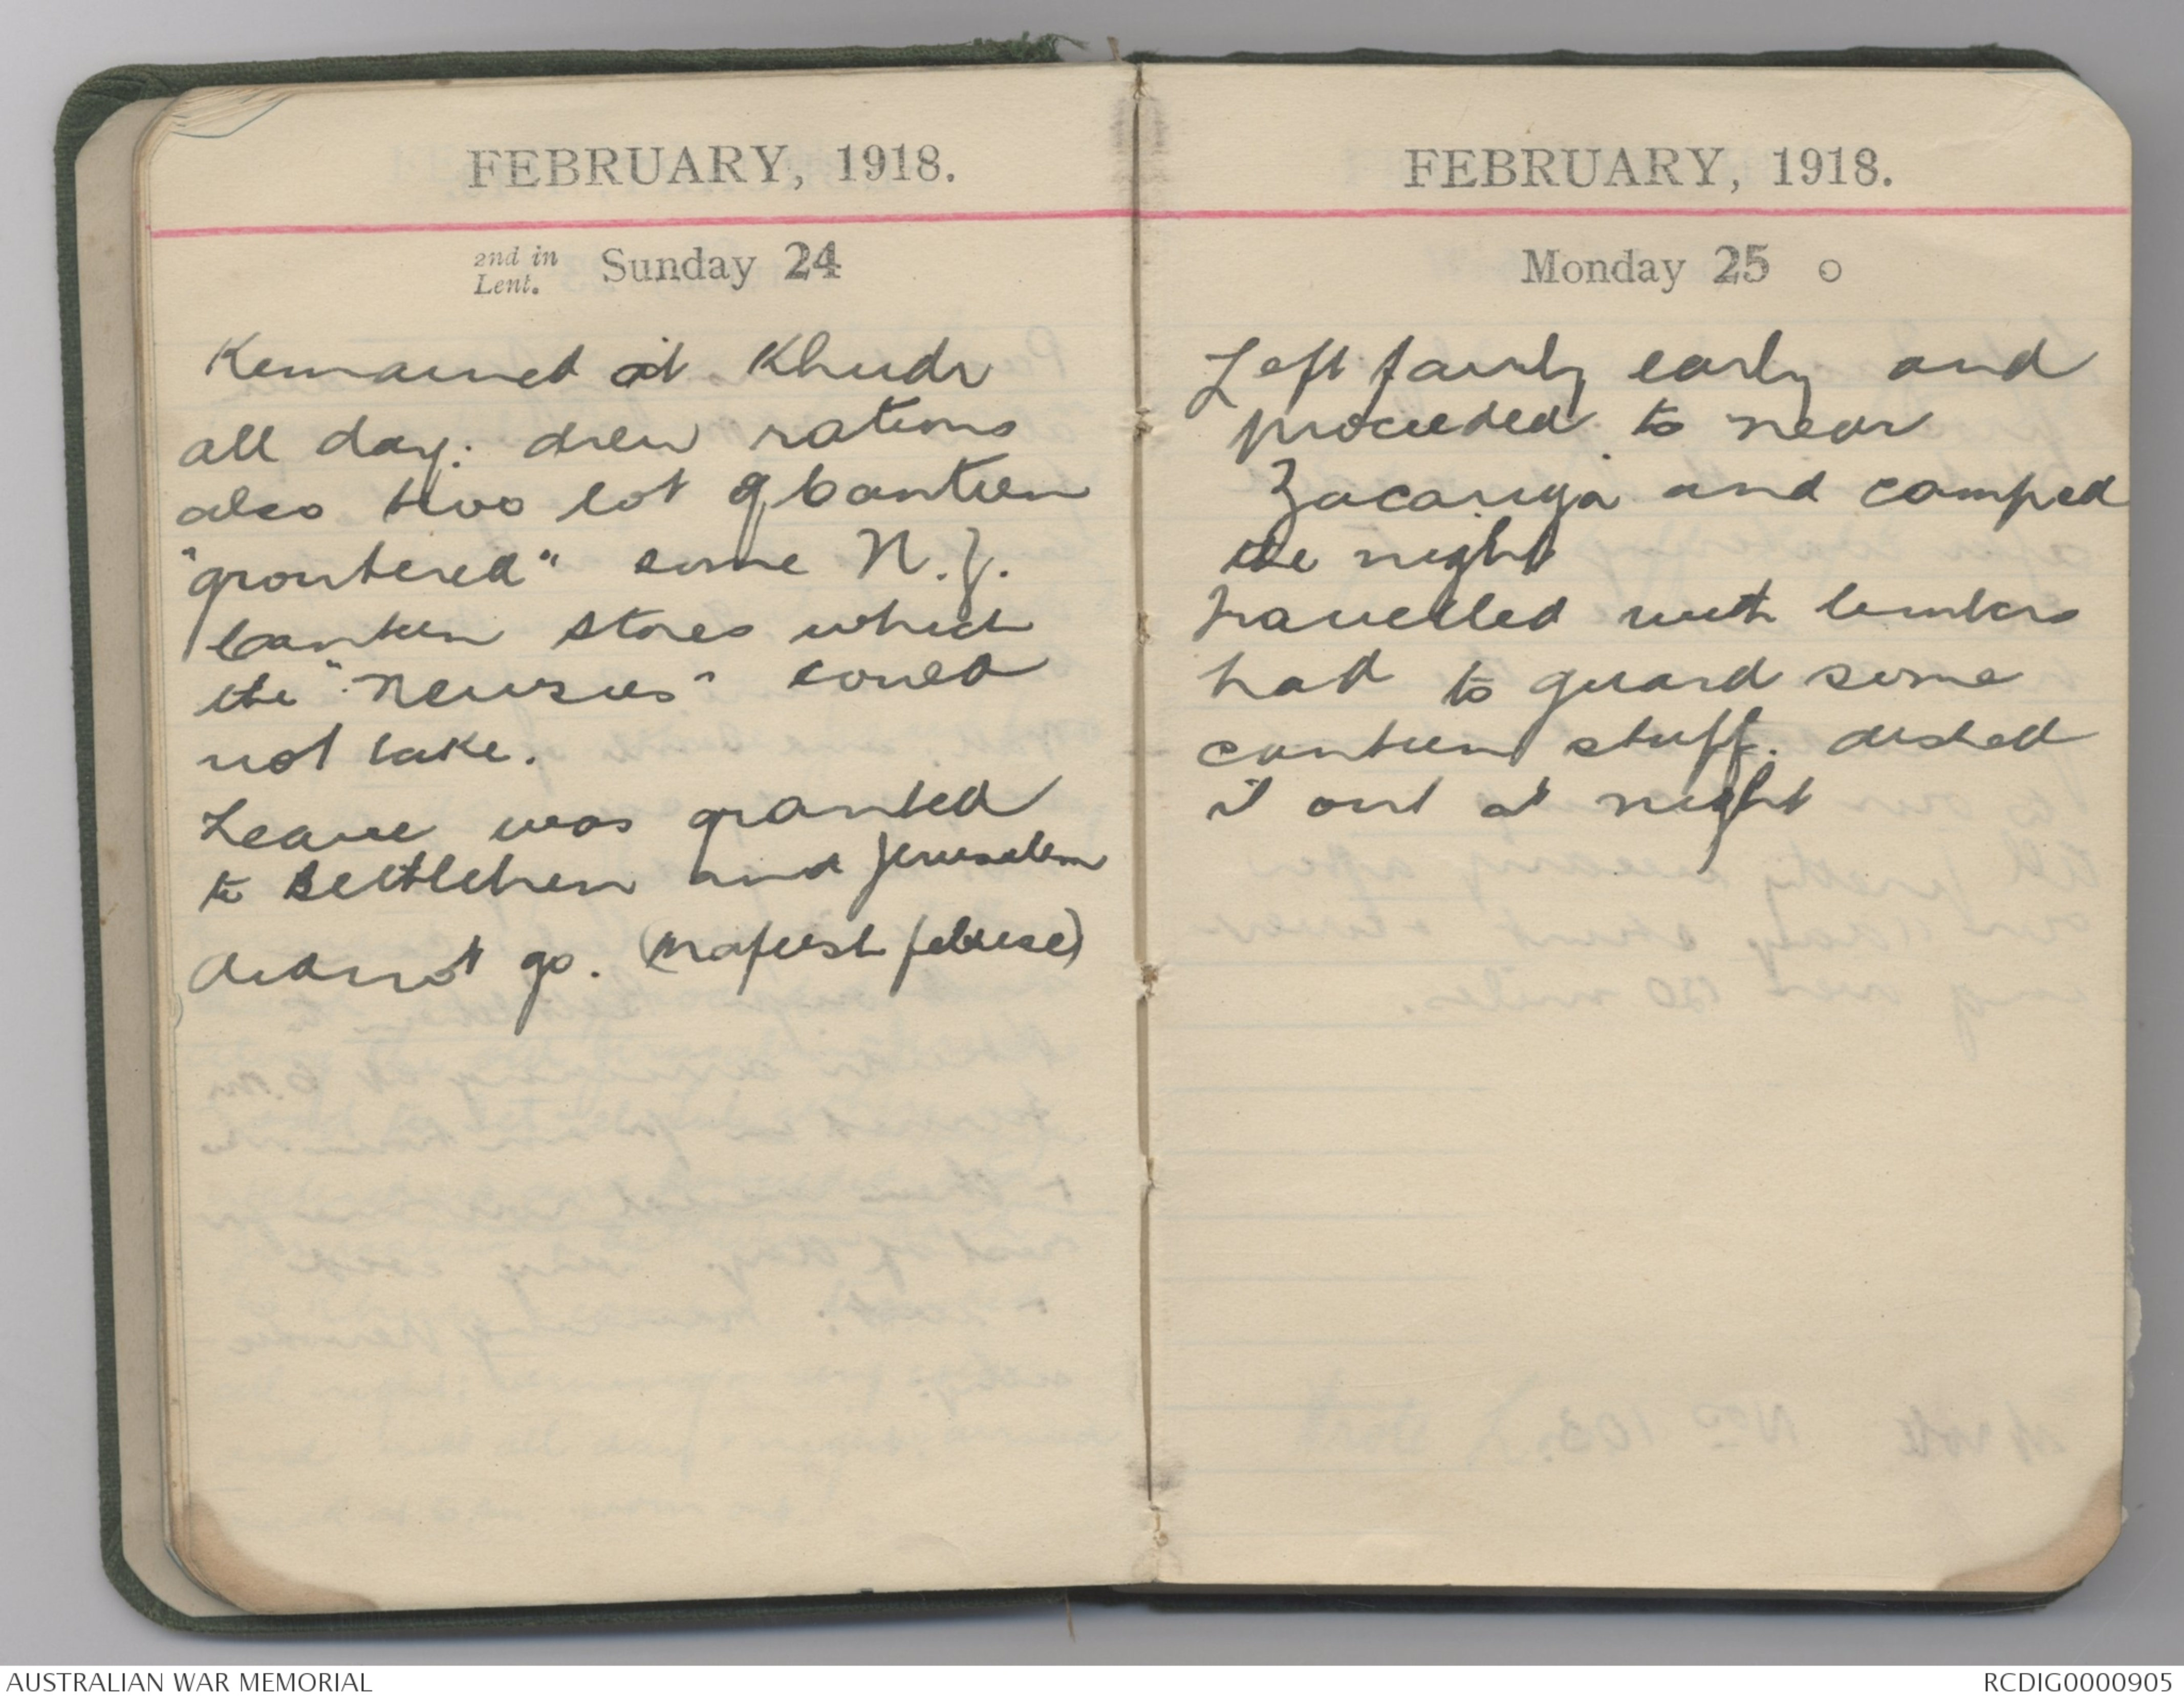 FEBRUARY, 1918.
2nd in Lent. Sunday 24
Remained at Khudr
all day. drew rations
also two lot of canteen
"groutered" some N.Z.
canteen stores which
the "Newzies" could
not take.
Leave was granted
to Bethlehem and Jerusalem
did not go. (mafeesh feluse)
FEBRUARY, 1918.
Monday 25 O
Left fairly early and
proceeded to near
Zacariya and camped
the night
travelled with limbers
had to guard some
canteen stuff. dished
it out at night
AUSTRALIAN WAR MEMORIAL
RCDIG0000905